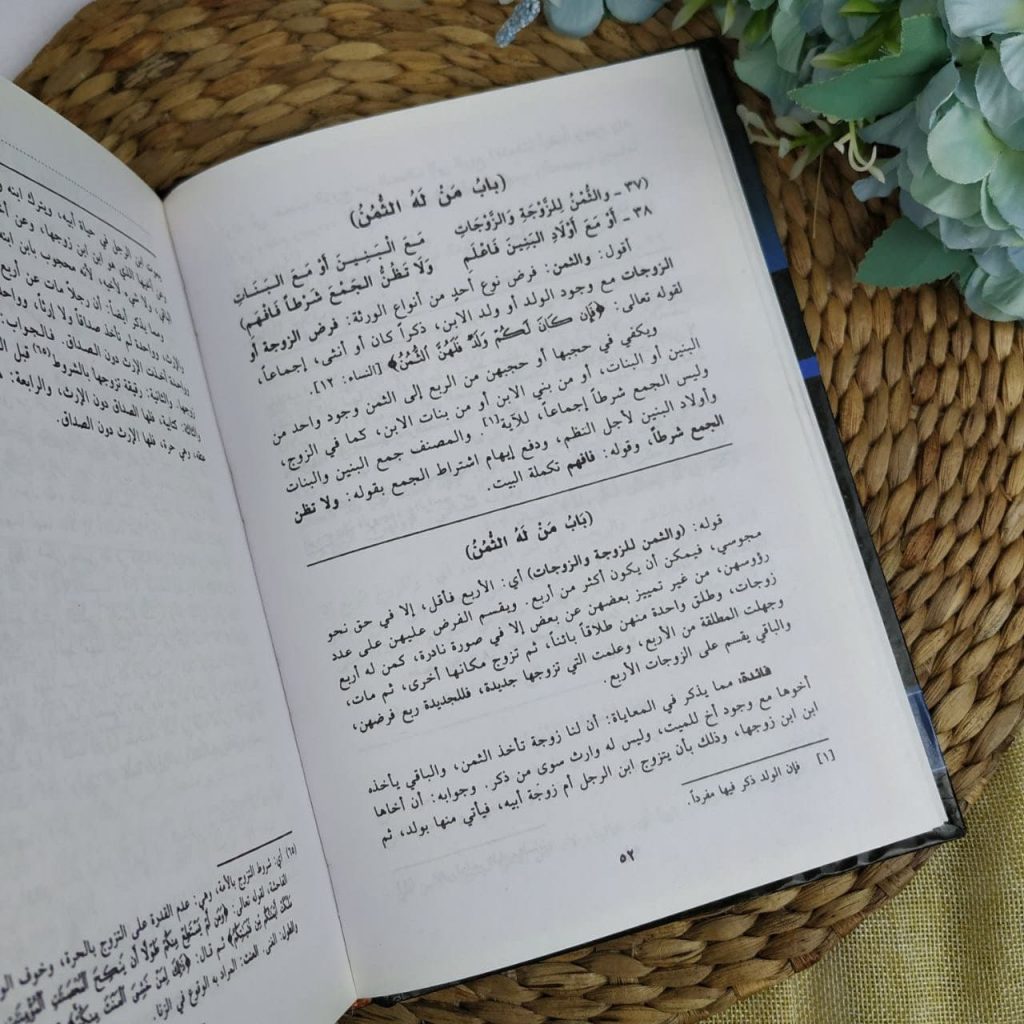 (بابُ مَنْ لَهُ الثُّمُنُ)
(٣٧ - والثُّمُنُ لِلزَّوْجَةِ وَالزَّوْجَاتِ مَعَ الْبَنِينَ أَوْ مَعَ البَنَاتِ
٣٨ - أَوْ مَعَ أَوْلَادِ البَنِينَ فَاعْلَمِ وَلَا تَظُنَّ الجَمْعَ شَرْطاً فَافْهَمِ)
أقول: والثمن: فرض نوع أحدٍ من أنواع الورثة: فرض الزوجة أو
الزوجات مع وجود الولد أو ولد الابن، ذكراً كان أو أنثى، إجماعاً،
لقوله تعالى: ﴿فَإِن كَانَ لَكُمْ وَلَدٌ فَلَهُنَّ الثُّمُنُ﴾ [النساء: ١٢].
ويكفي في حجبها أو حجبهن من الربع إلى الثمن وجود واحد من
البنين أو البنات، أو من بني الابن أو من بنات الابن، كما في الزوج،
وليس الجمع شرطاً إجماعاً، للآية[١]. والمصنف جمع البنين والبنات
وأولاد البنين لأجل النظم، ودفع إيهام اشتراط الجمع بقوله: ولا تظن
الجمع شرطاً، وقوله: فافهم تكملة البيت.
(بَابُ مَنْ لَهُ الثُّمُنُ)
قوله: (والثمن للزوجة والزوجات) أي: الأربع فأقل، إلا في حق نحو
مجوسي، فيمكن أن يكون أكثر من أربع. ويقسم الفرض عليهن على عدد
رؤوسهن، من غير تمييز بعضهن عن بعض إلا في صورة نادرة، كمن له أربع
زوجات، وطلق واحدة منهن طلاقاً بائناً، ثم تزوج مكانها أخرى، ثم مات،
وجهلت المطلقة من الأربع، وعلمت التي تزوجها جديدة، فللجديدة ربع فرضهن،
والباقي يقسم على الزوجات الأربع.
فائدة: مما يذكر في المعاياة: أن لنا زوجة تأخذ الثمن، والباقي يأخذه
أخوها مع وجود أخ للميت، وليس له وارث سوى من ذكر. وجوابه: أن أخاها
ابن ابن زوجها، وذلك بأن يتزوج ابن الرجل أم زوجة أبيه، فيأتي منها بولد، ثم
[١] فإن الولد ذكر فيها مفرداً.
٥٢
يموت ابن الرجل في حياة أبيه، ويترك ابنه
زوجها. والثانية: رقيقة تزوجها بالشروط(٦٥) قبل
والثالثة: كتابية، فلها الصداق دون الإرث، والرابعة:
عقد، وهي حرة، فلها الإرث دون الصداق.
(٦٥) أي: شروط التزوج بالأمة، وهي: عدم القدرة على التزوج بالحرة، وخوف